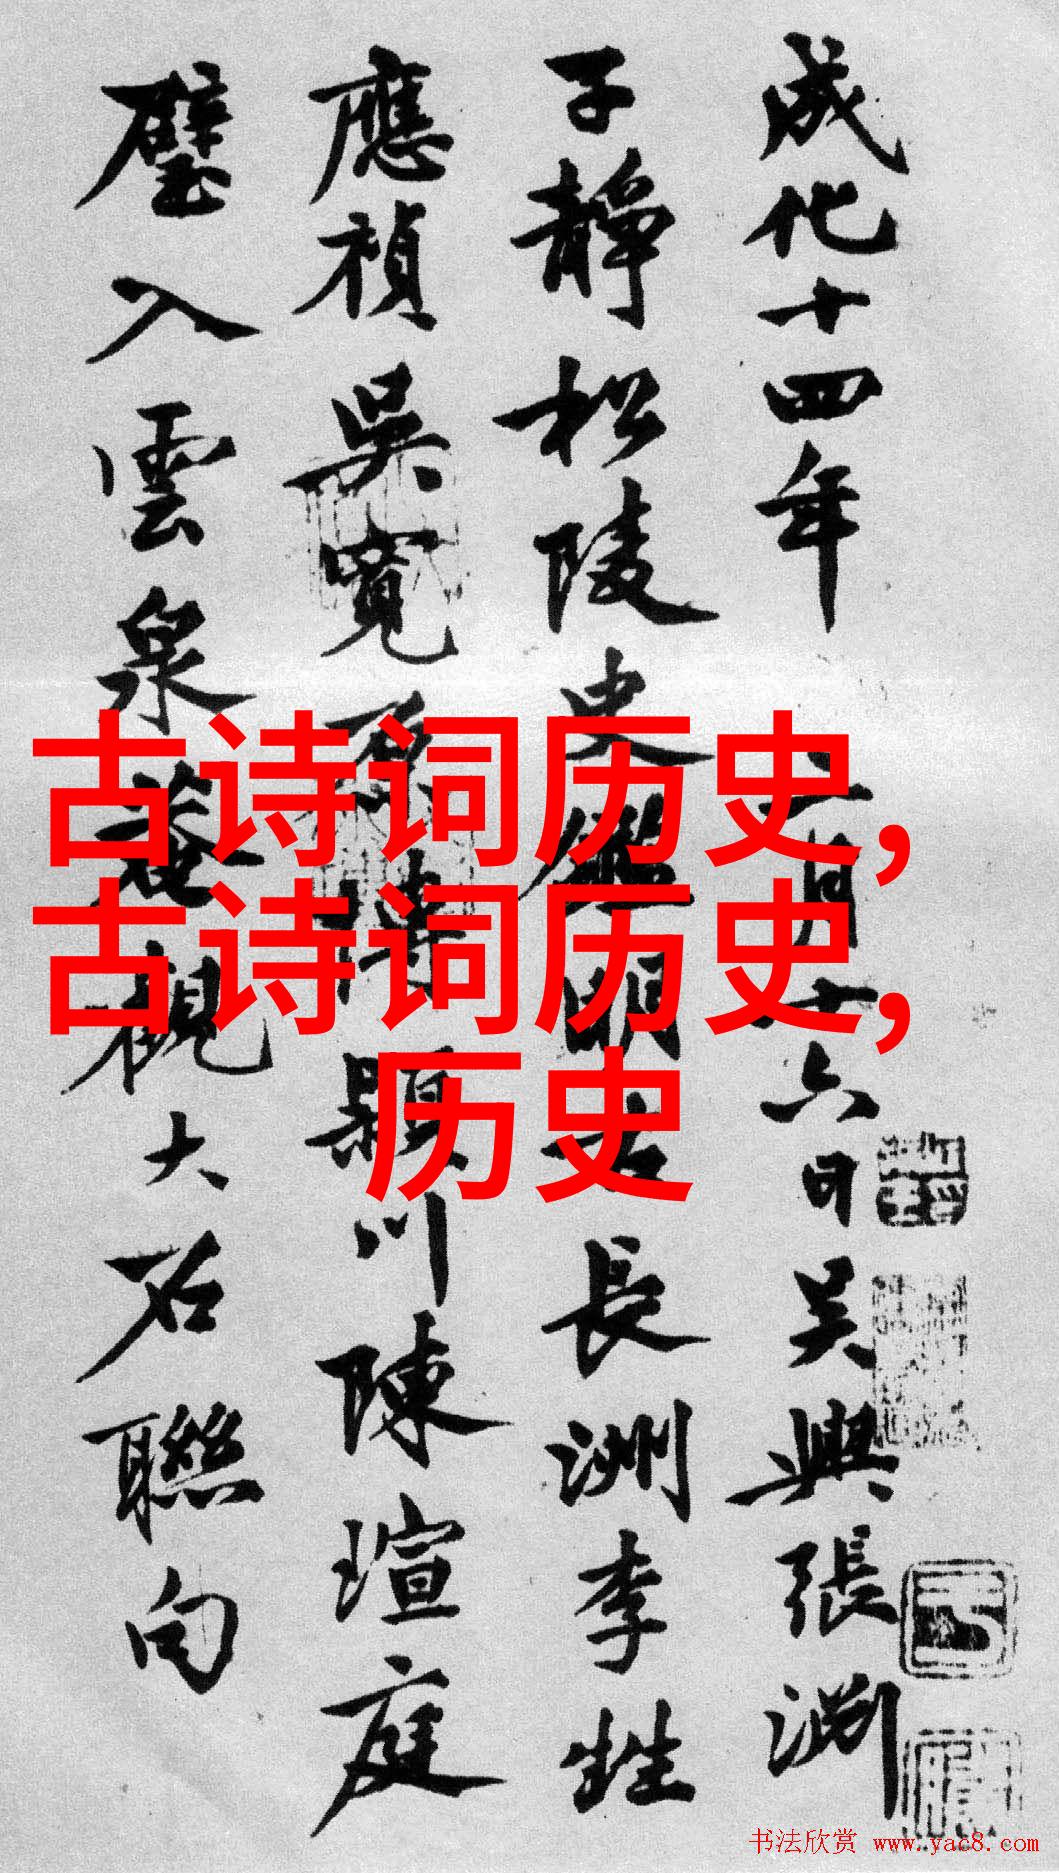 成化十四年二月十六日吳興張淵
子靜松陵史鑑明古長洲李甡
應禎吳寬原博潁川陳瑄庭
璧入雲泉菴觀大石聯句
古诗词历史,
古诗词历史,
历史
书法欣赏 www.yac8.com